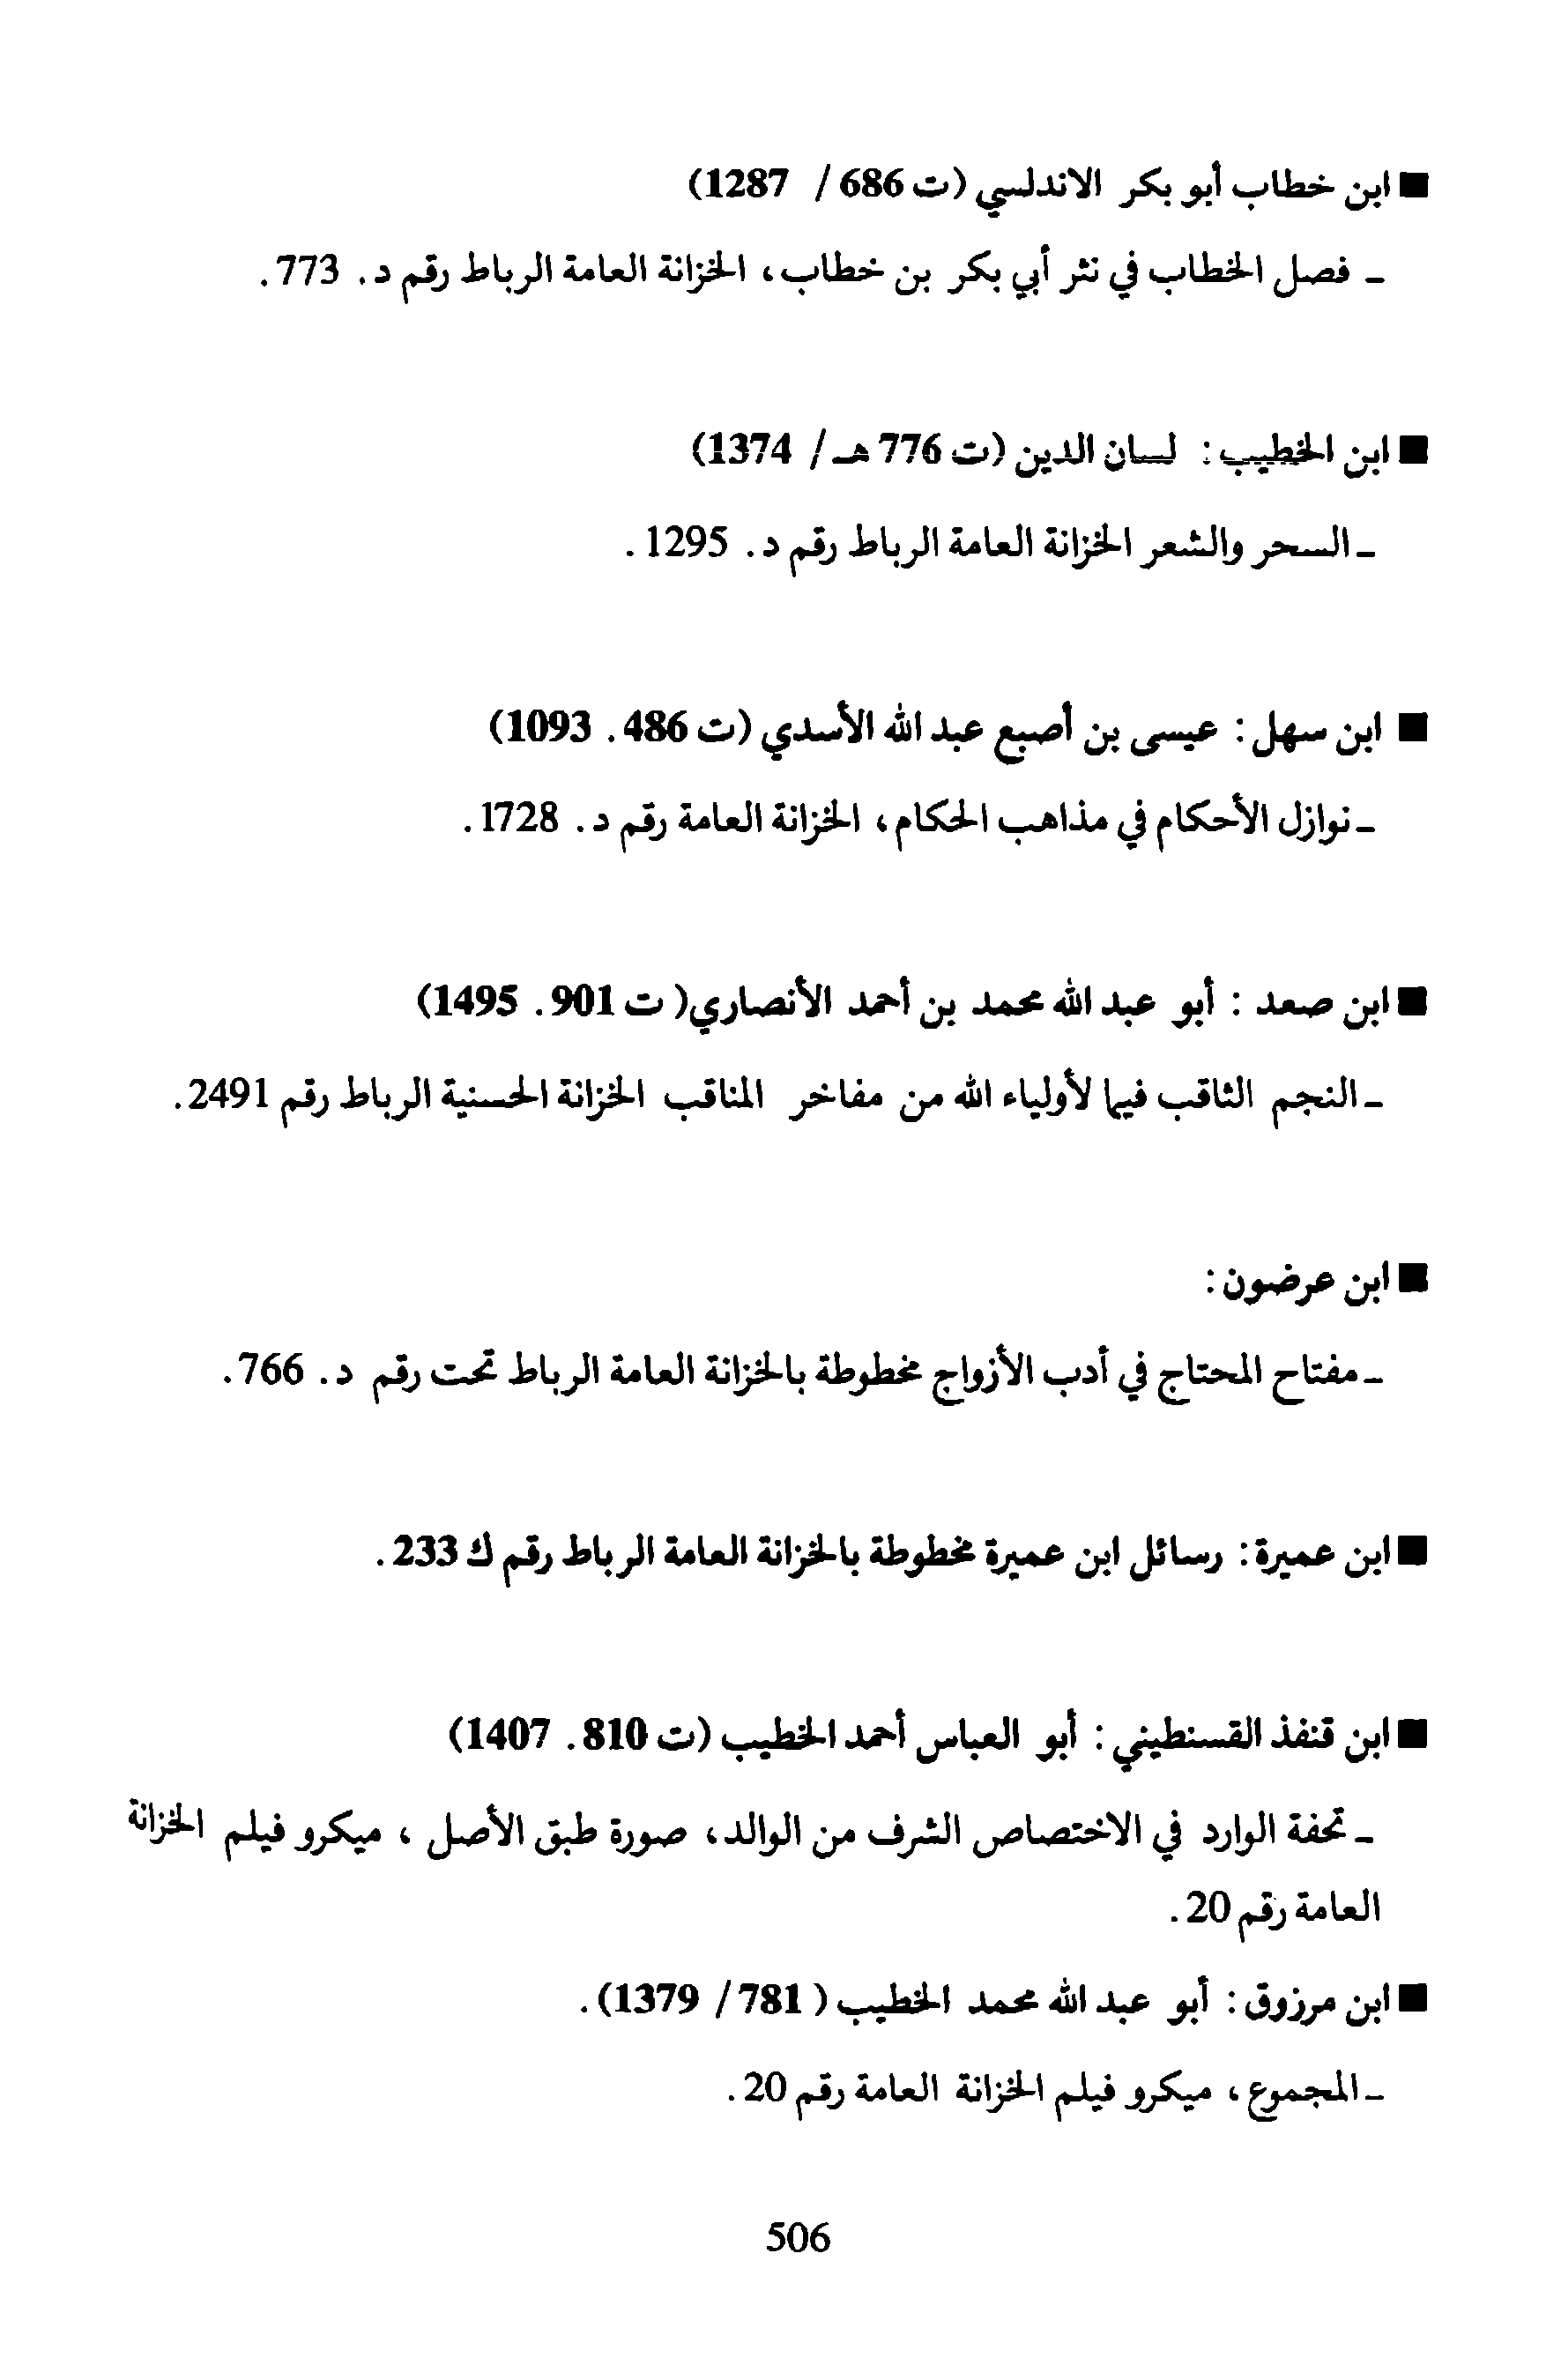 ■ ابن خطاب أبو بكر الاندلسي (ت 686 / 1287)
ـ فصل الخطاب في نثر أبي بكر بن خطاب، الخزانة العامة الرباط رقم د. 773.
■ ابن الخطيب : لسان الدين (ت 776 هـ / 1374)
ـ السحر والشعر الخزانة العامة الرباط رقم د. 1295 .
■ ابن سهل : عيسى بن أصبع عبد الله الأسدي (ت 486 . 1093)
ـ نوازل الأحكام في مذاهب الحكام، الخزانة العامة رقم د. 1728 .
■ ابن صعد : أبو عبد الله محمد بن أحمد الأنصاري( ت 901 . 1495)
ـ النجم الثاقب فيما لأولياء الله من مفاخر المناقب الخزانة الحسنية الرباط رقم 2491.
■ ابن عرضون :
ـ مفتاح المحتاج في أدب الأزواج مخطوطة بالخزانة العامة الرباط تحت رقم د. 766 .
■ ابن عميرة : رسائل ابن عميرة مخطوطة بالخزانة العامة الرباط رقم ك 233 .
■ ابن قنفذ القسنطيني : أبو العباس أحمد الخطيب (ت 810 . 1407)
ـ تحفة الوارد في الاختصاص الشرف من الوالد، صورة طبق الأصل ، ميكرو فيلم الخزانة
العامة رقم 20 .
■ ابن مرزوق : أبو عبد الله محمد الخطيب ( 781 / 1379) .
ـ المجموع، ميكرو فيلم الخزانة العامة رقم 20 .
506